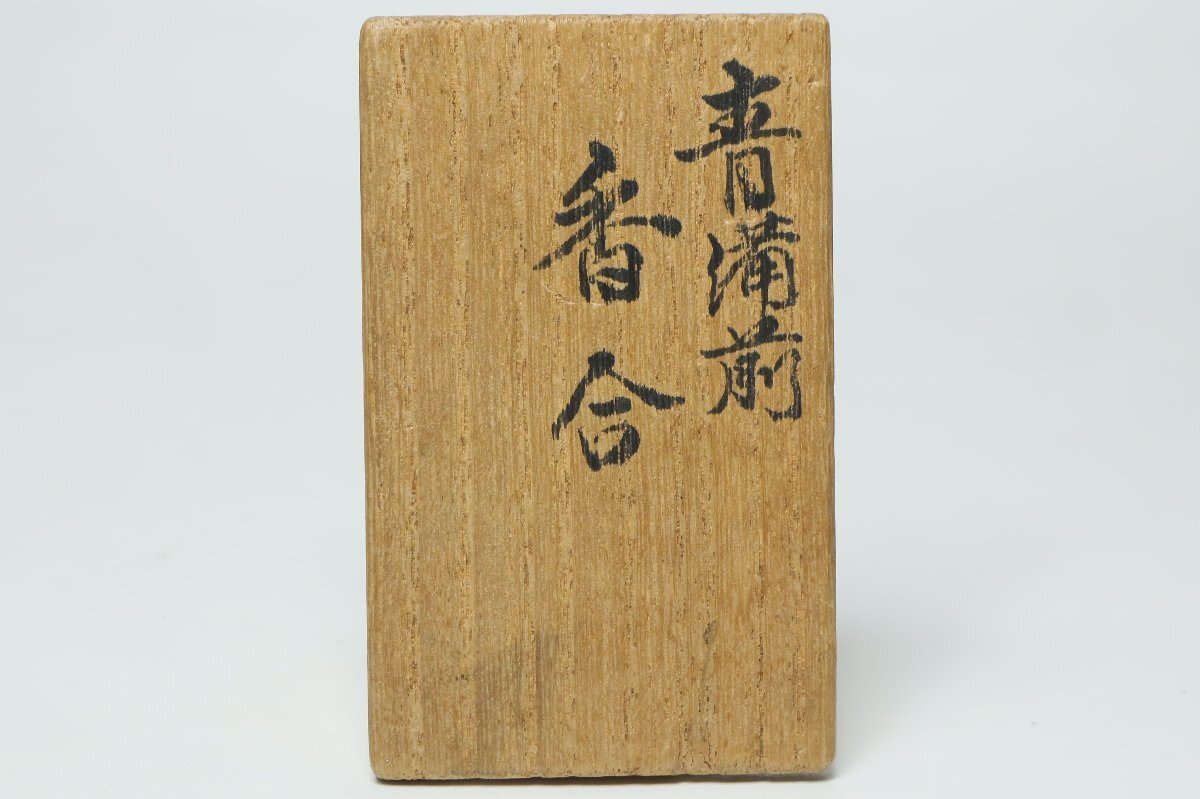 青備前
香合